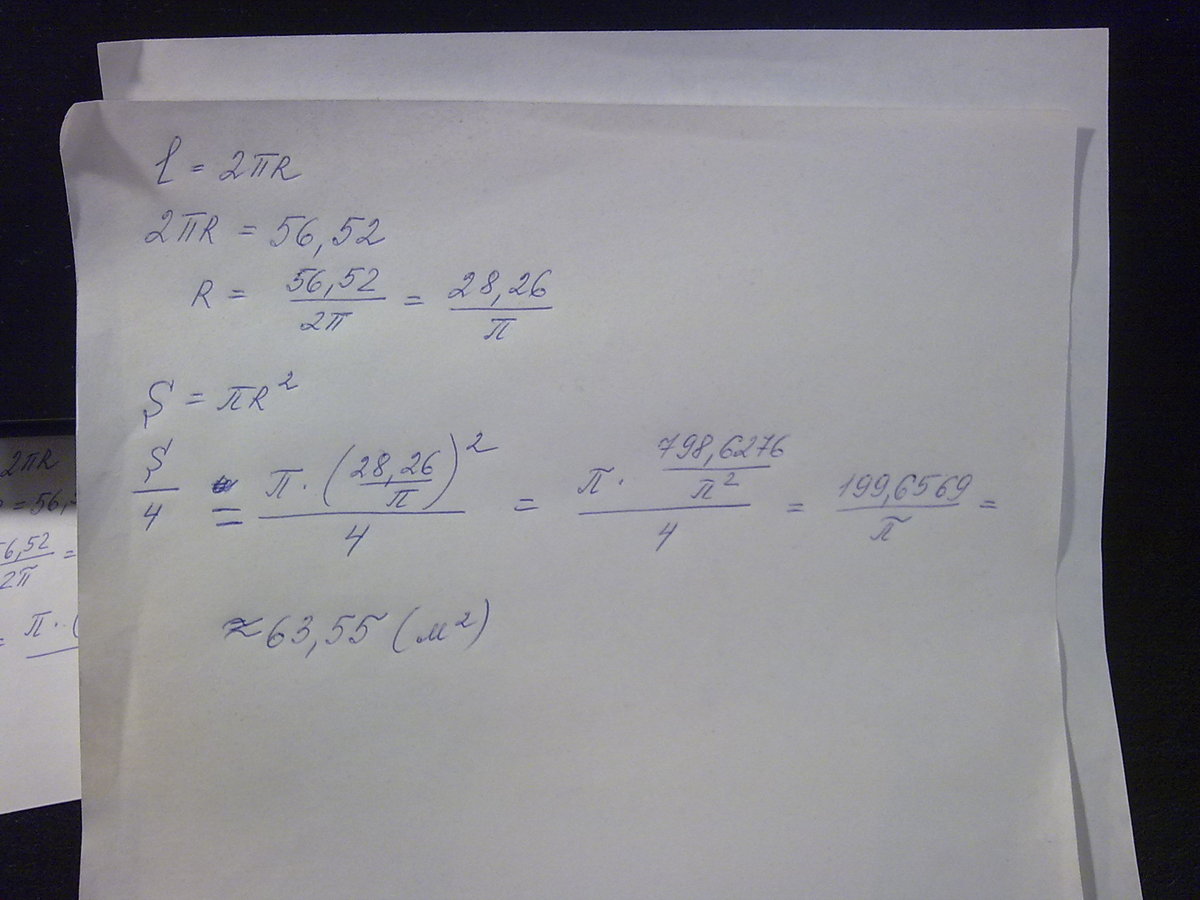 l = 2πR
2πR = 56,52
R = 56,52/2π = 28,26/π
S = πR²
S/4 = π·(28,26/π)²/4 = π·798,6276/π²/4 = 199,6569/π =
≈63,55 (м²)
2πR
= 56,
56,52/2π =
= π·(